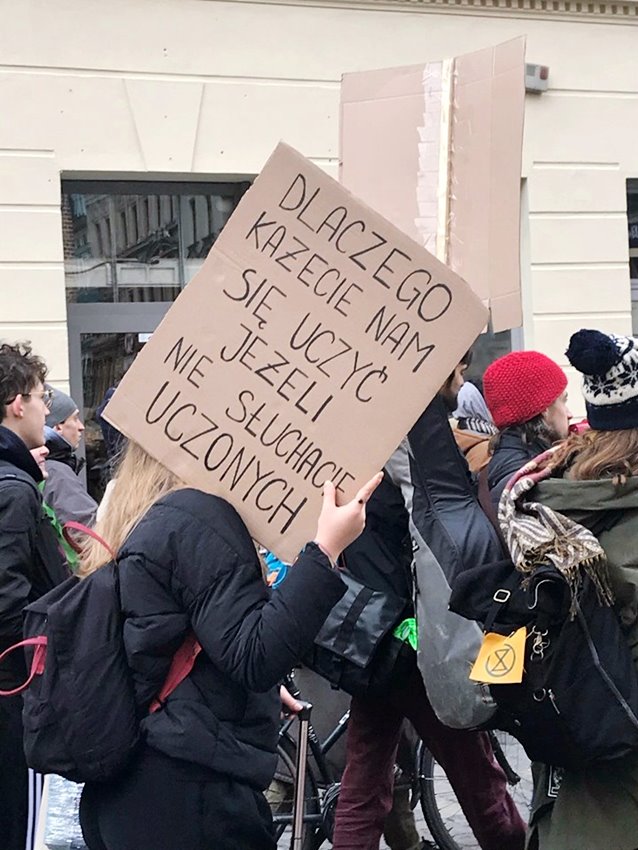 DLACZEGO
KAŻECIE NAM
SIĘ UCZYĆ
JEŻELI
NIE SŁUCHACIE
UCZONYCH